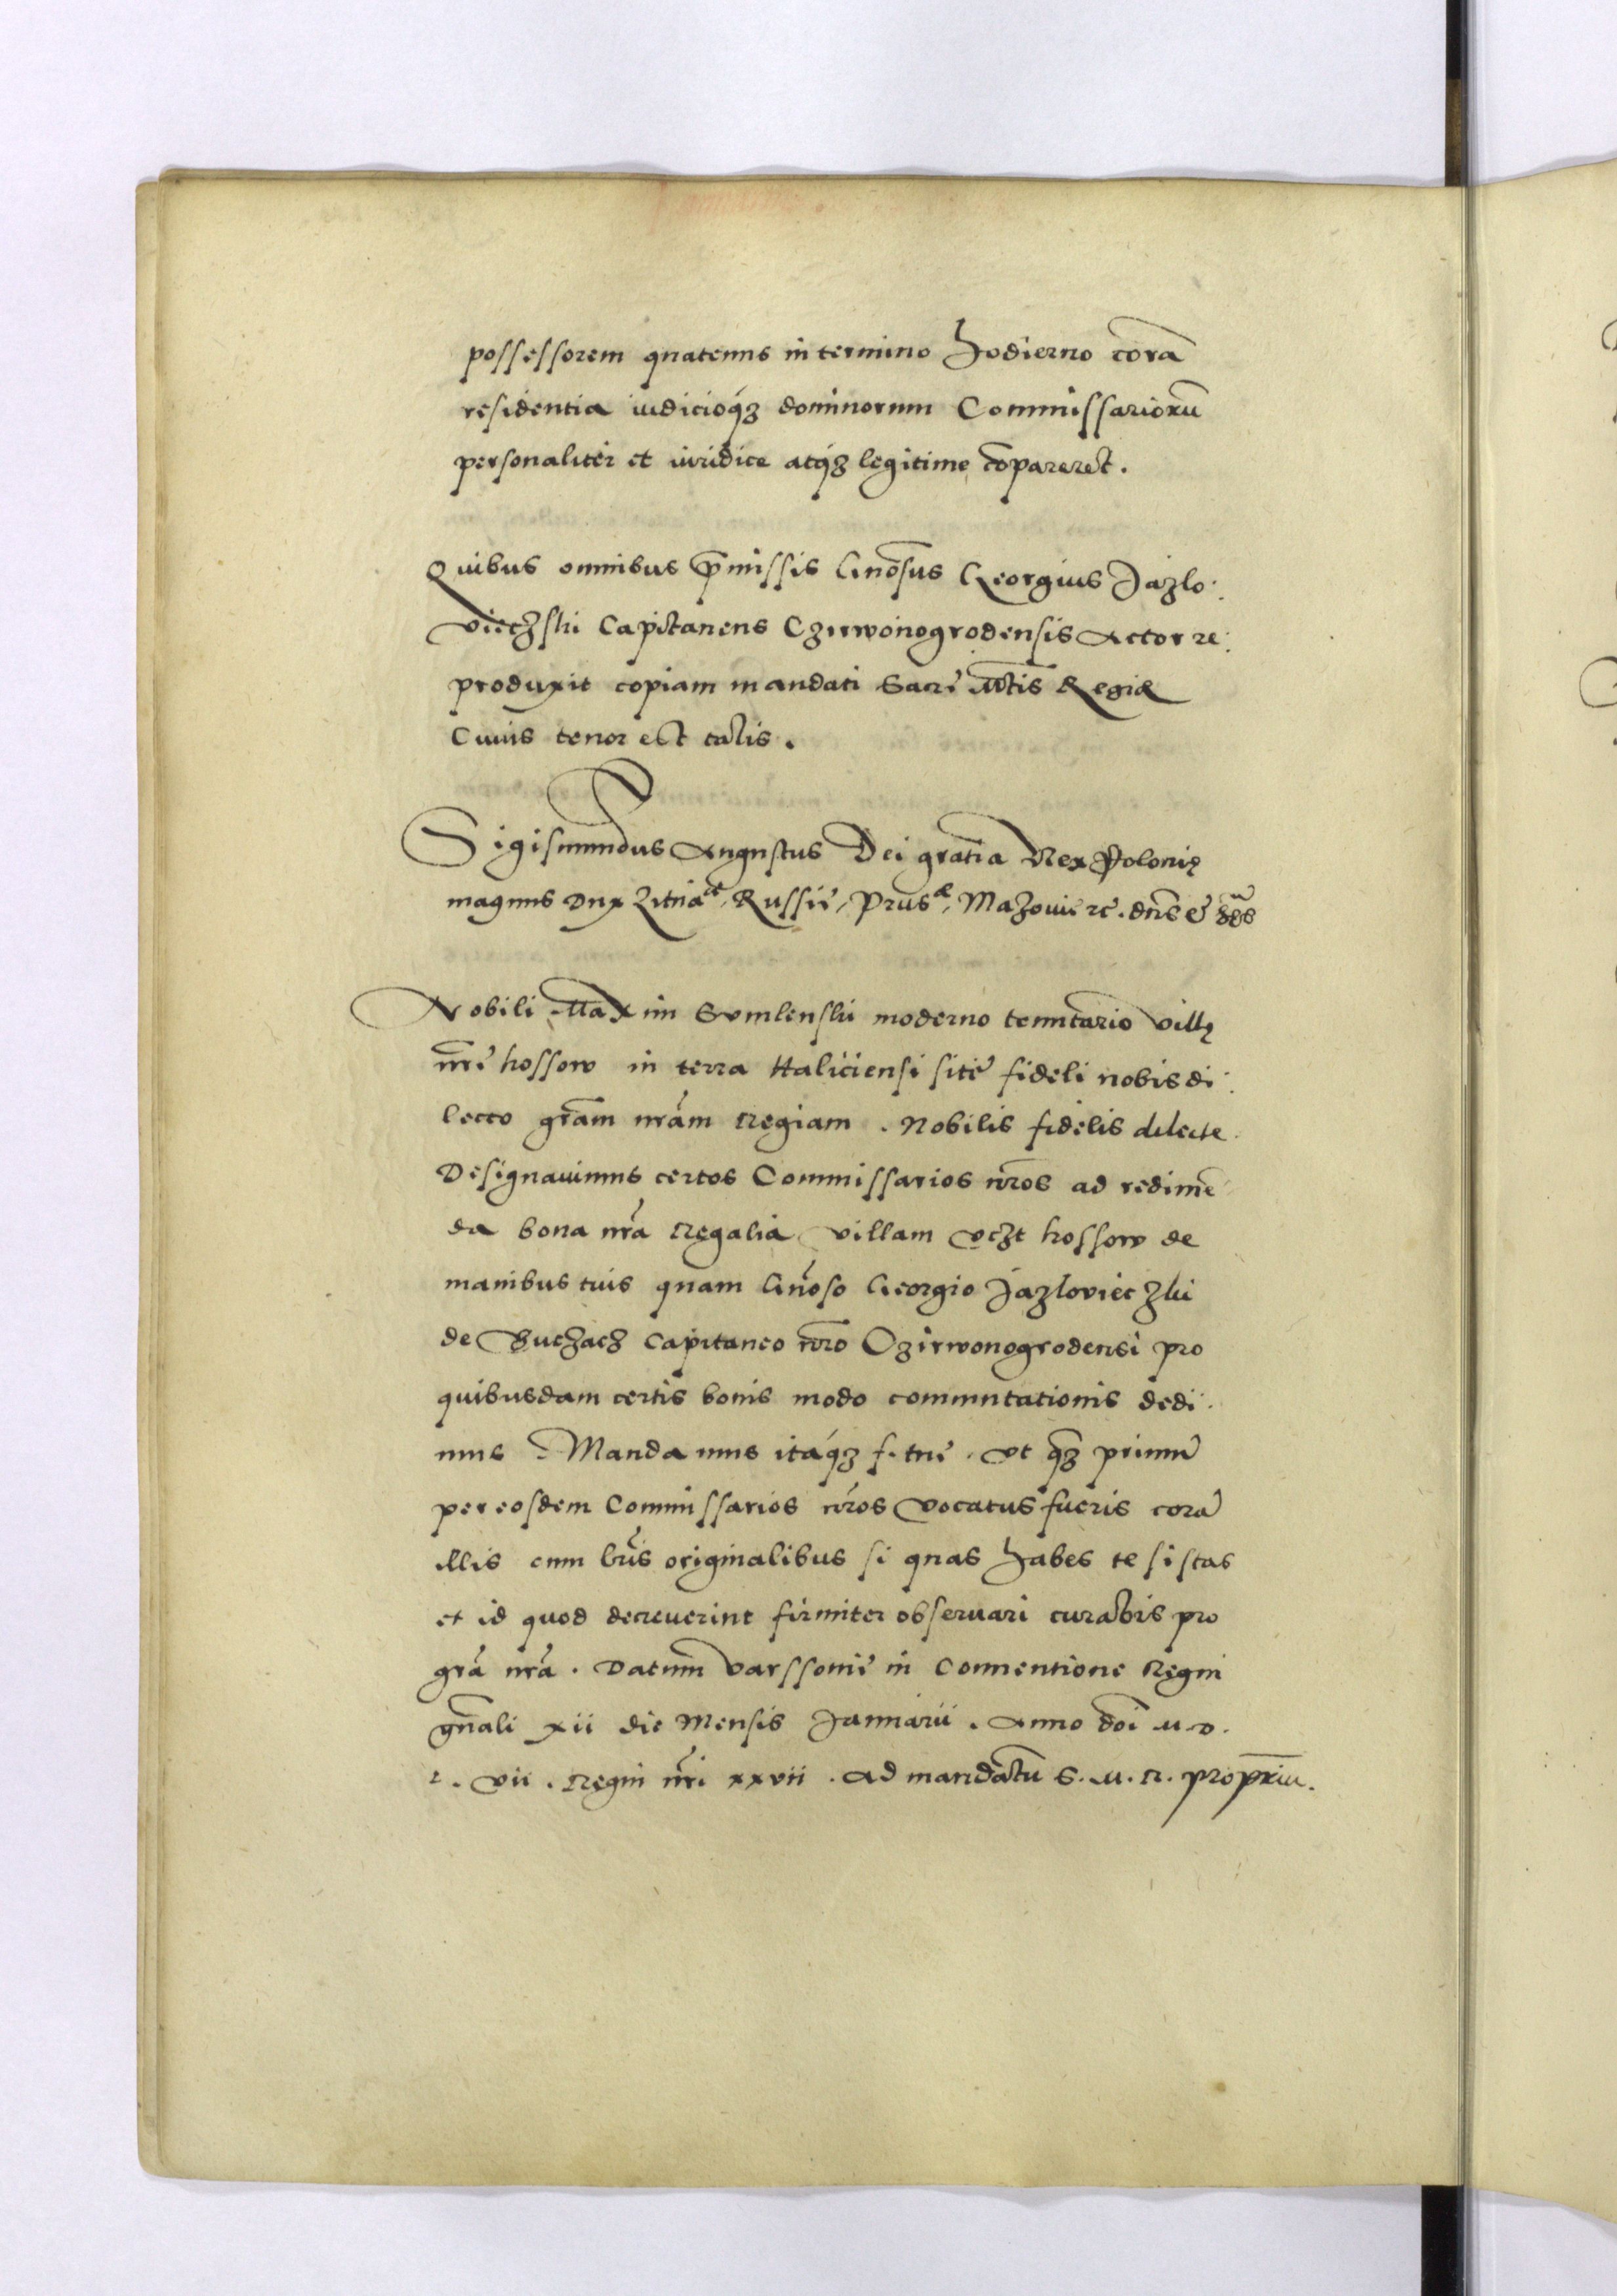 possessorem quatenus in termino hodierno corā
residentia iudicioq́ꝫ dominorum Commissariorū
personaliter et iuridice atq́ꝫ legitime cōpareret.
Quibus omnibus p̄missis Gn̄osus Georgius Jazlo:
vieczski Capitaneus Czirwonogrodensis Actor re:
produxit copiam mandati Sacrę Mtīs Regiæ
Cuius tenor est talis.
Sigismundus Augustus Dei gratia Rex Polonię
magnus Dux Litua᷒, Russię, Prus᷒, Mazouię ꝛc. dn̄s et hęs
Nobili Maxim Szumlenski moderno tenutario villę
nr̄ę kossow in terra Haliciensi sitę fideli nobis di:
lecto gr̄am nr̄am Regiam. Nobilis fidelis dilecte.
Designauimus certos Commissarios nr̄os ad redimē
da bona nr̄a Regalia villam vczt kossow de
manibus tuis quam Gn̄oso Georgio Jazlovieczki
de Buczacz Capitaneo nr̄o Czirwonogrodensi pro
quibusdam certis bonis modo commutationis dedi:
mus. Mandamus itaq́ꝫ f. tuę. vt qꝫ primū
per eosdem Commissarios nr̄os vocatus fueris corā
illis cum lr̄is originalibus si quas habes te sistas
et id quod decreuerint firmiter obseruari curabis pro
gr̄a nr̄a. Datum Varssouię in Conuentione Regni
gn̄ali xii die Mensis Januarii. Anno doī M.D.
L. vii. Regni nr̄i xxvii. Ad mandatū S. M. R. propriū.